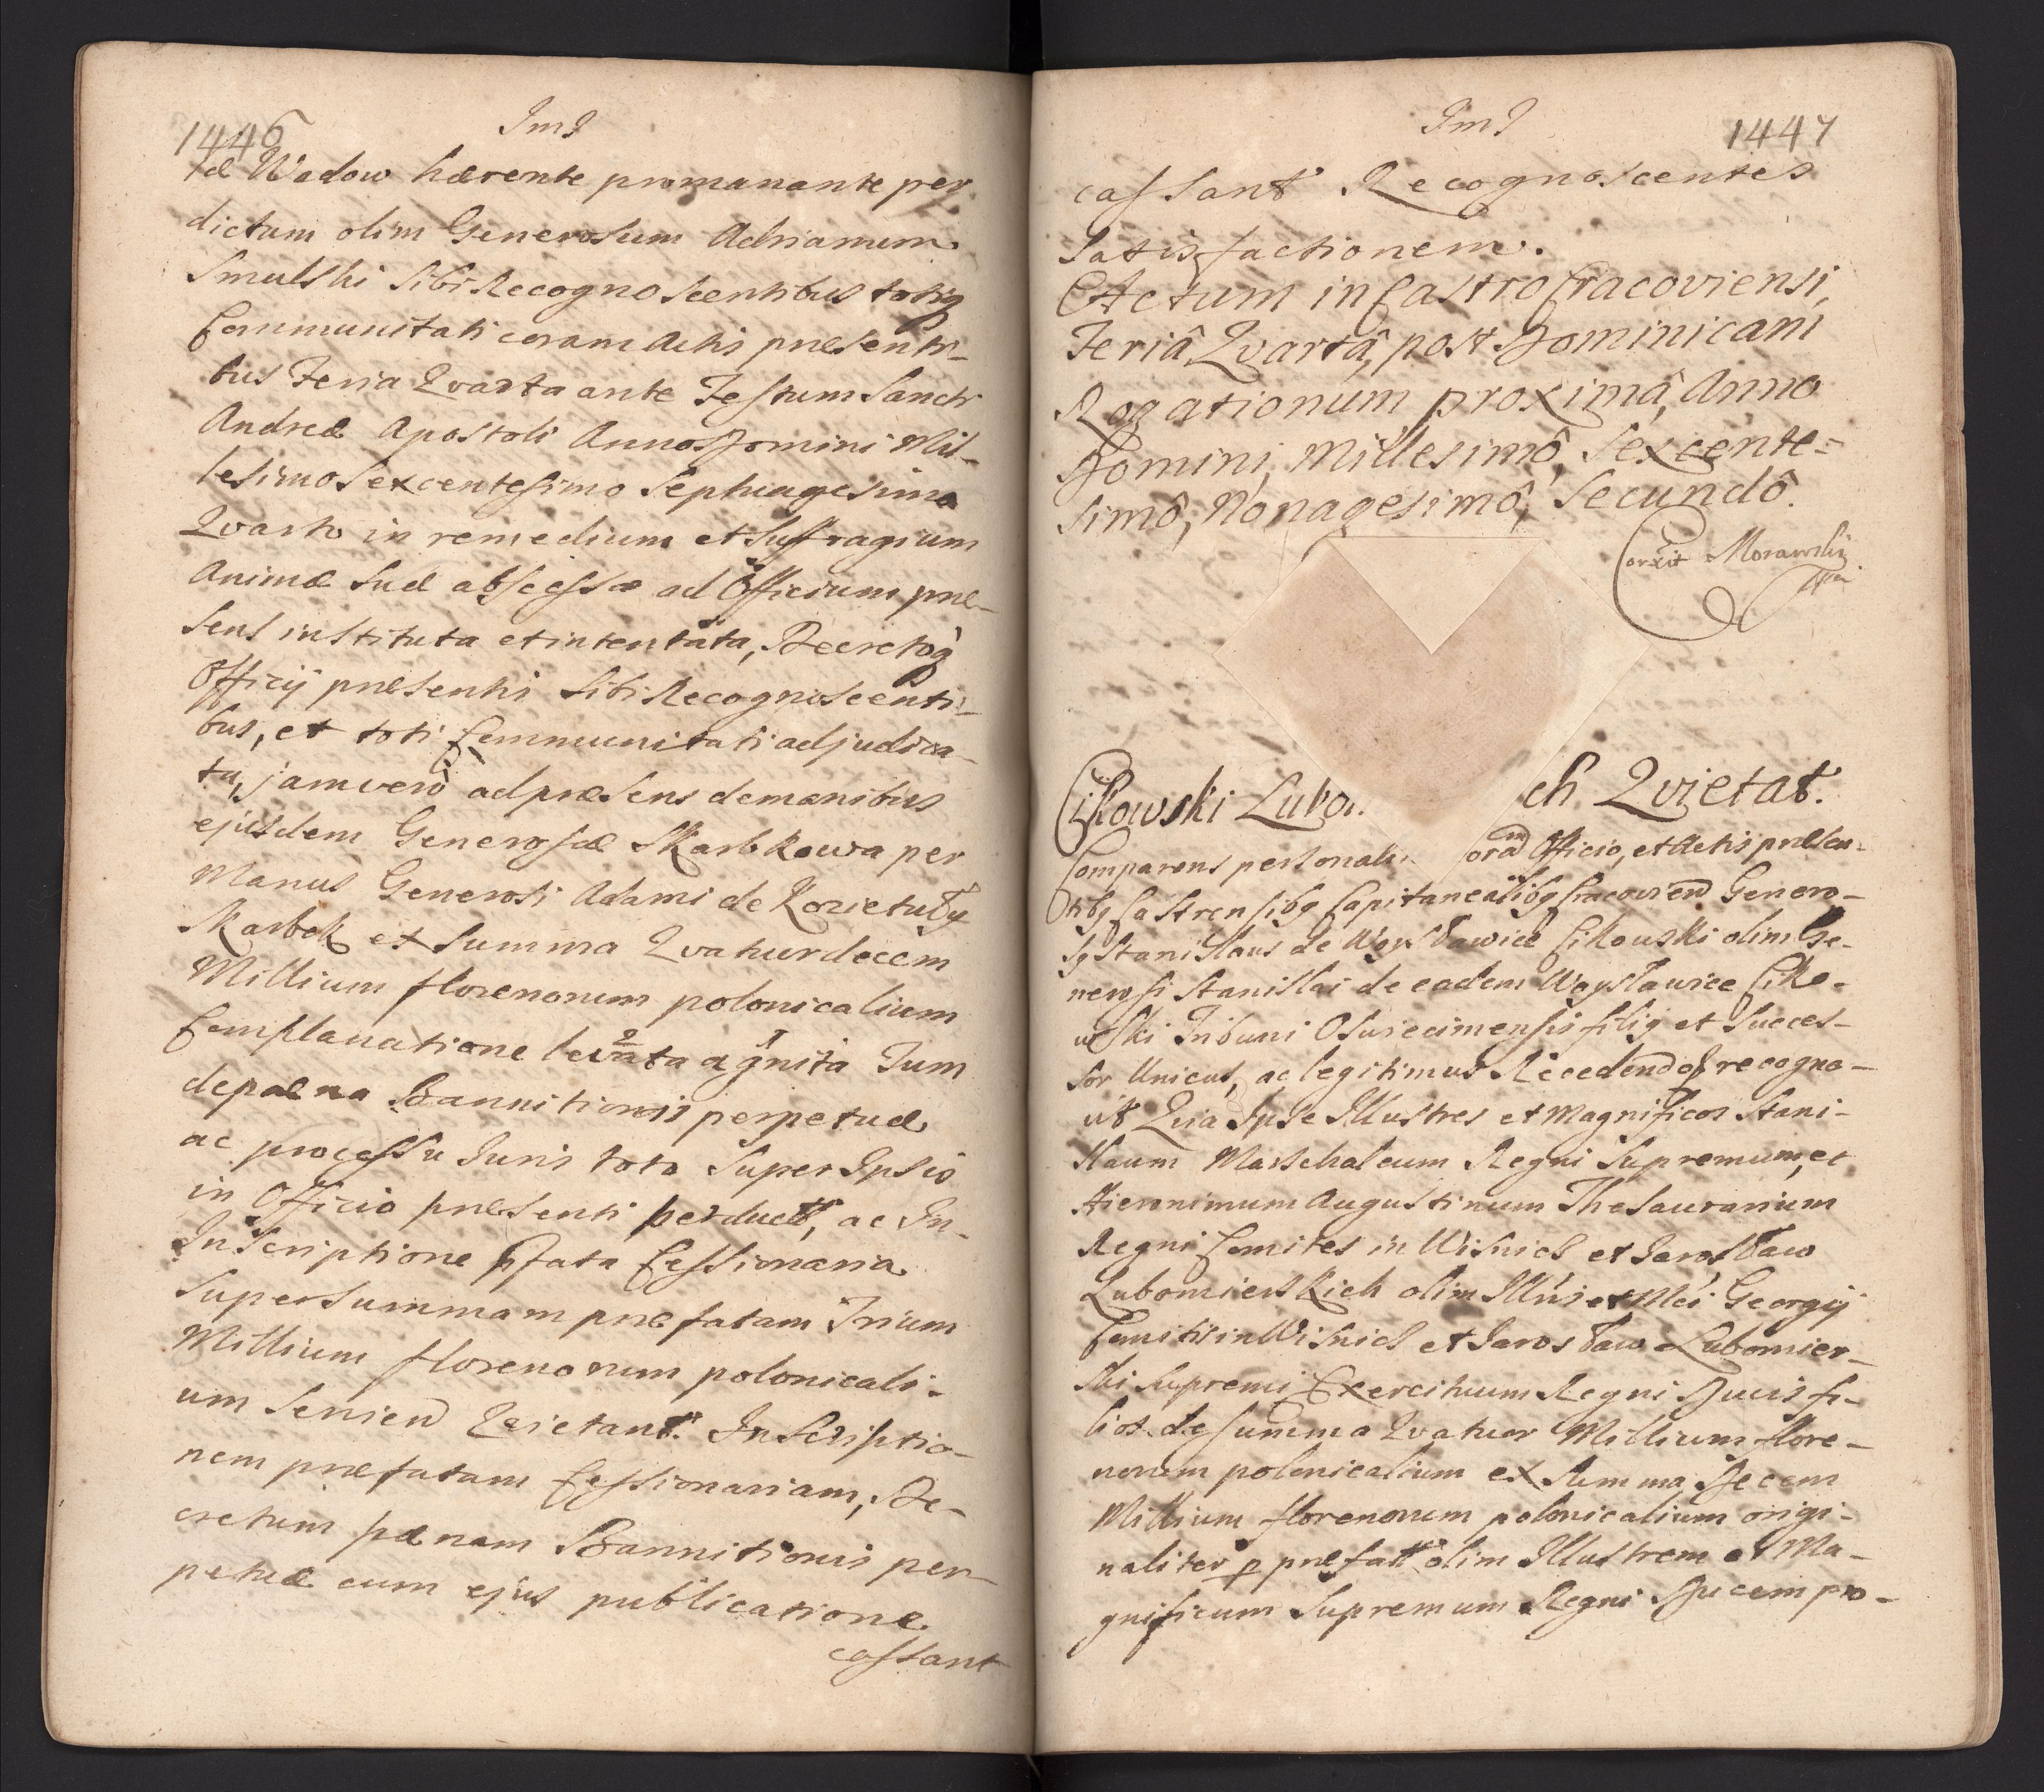 1446
ImI
tæ Wadow hærente promanante per
dictum olim Generosum Adrianum
Smulski sibi Recognoscentibus totiq
Communitati coram Actis præsenti-
bus Feria Qvarta ante Festum Sancti
Andreæ Apostoli Anno Domini Mil-
lesimo Sexcentesimo Septuagesimo
Qvarto in remedium et Suffragium
Animæ Suæ abscessæ ad Officium præ-
sens instituta et intentata, Decretoq
Officij præsentis sibi Recognoscenti-
bus, et toti Communitati adjudica-
ta, jam verò ad præsens de manibus
ejusdem Generosæ Skarbkowa per
Manus Generosi Adami de Kozietuły
Skarbek et Summa Qvatuordecem
Millium florenorum polonicalium
Complanatione levata agnita Tum
de pæna Bannitionis perpetuæ
ac processu Iuris toto Super Ipsis
in Officio præsenti perduct, ac In-
Inscriptione pfata Cessionaria
Super Summam præfatam Trium
Millium florenorum polonicali-
um Servien Qvietant. Inscriptio-
nem præfatam Cessionariam, De-
cretum pænam Bannitionis per-
petuæ cum ejus publicatione
cassant
ImI
1447
cassant Recognoscentes
Satisfactionem.
Actum in Castro Cracoviensi,
Feriâ Qvartâ, post Dominicam
Rogationum proximâ, Anno
Domini, Millesimô, Sexcente=
simô, Nonagesimô, Secundô.
Corrxit Morawski
mp
Cikowski Lubo. ch Qvietat.
Comparens personali oram Officio, et Actis præsen-
tibq Castrensibq Capitanealibq Cracovien Genero-
sq Stanislaus de Woysławice Cikowski olim Ge-
nerosi Stanislai de eadem Woysławice Ciko-
wski Tribuni Osviecimensis filiq et Succes-
sor Unicus, ac legitimus Recedend of recogno-
vit Qvia Ipse Illustres et Magnificos Stani-
slaum Marschalcum Regni Supremum, et
Hieronimum Augustinum Thesaurarium
Regni Comites in Wisnicz et Jarosław
Lubomierskich olim Illris et Mci Georgij
Comitis in Wisnicz et Jarosław Lubomier-
ski Supremi Exercituum Regni Ducis fi-
lios de Summa Qvatuor Millium flore-
norum polonicalium ex Summa Decem
Millium florenorum polonicalium origi-
naliter p præfatt olim Illustrem et Ma-
gnificum Supremum Regni Ducem pro-